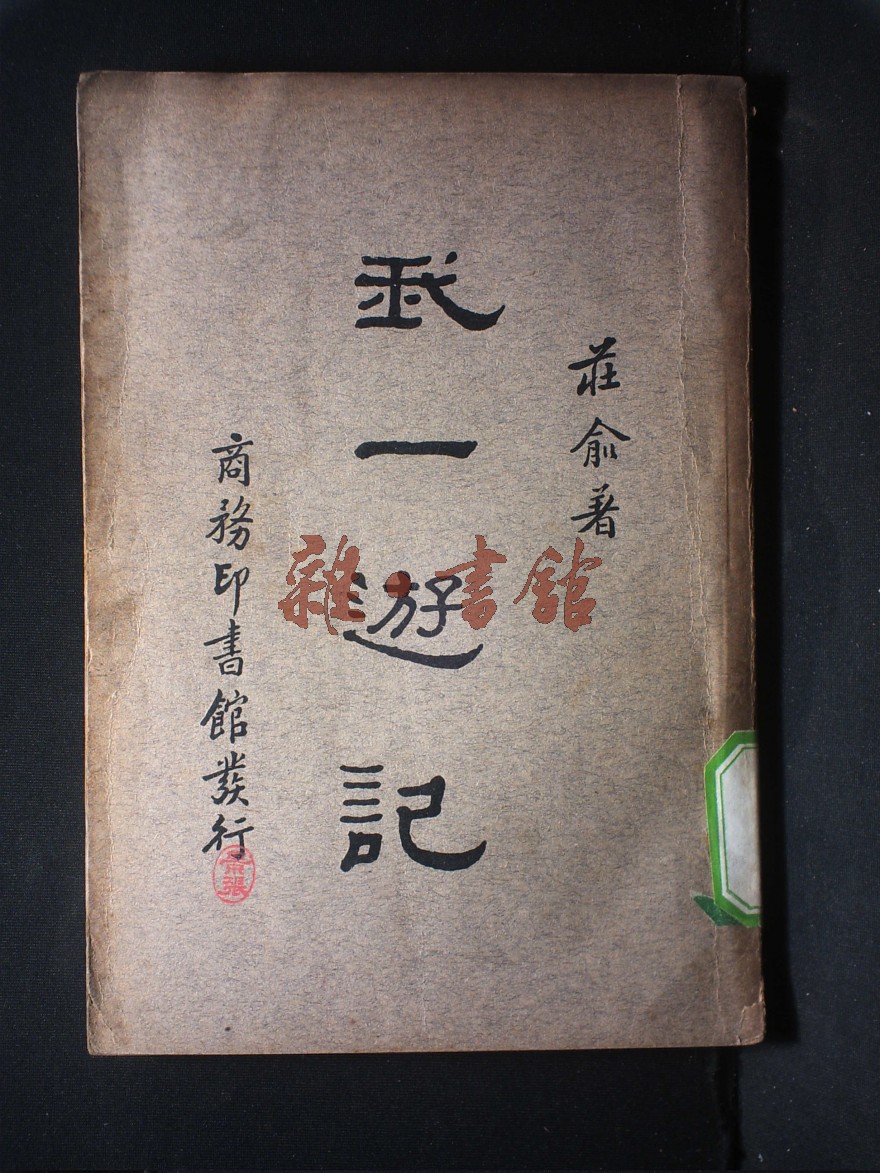 莊俞著
我一遊記
商務印書館發行
雜·書館